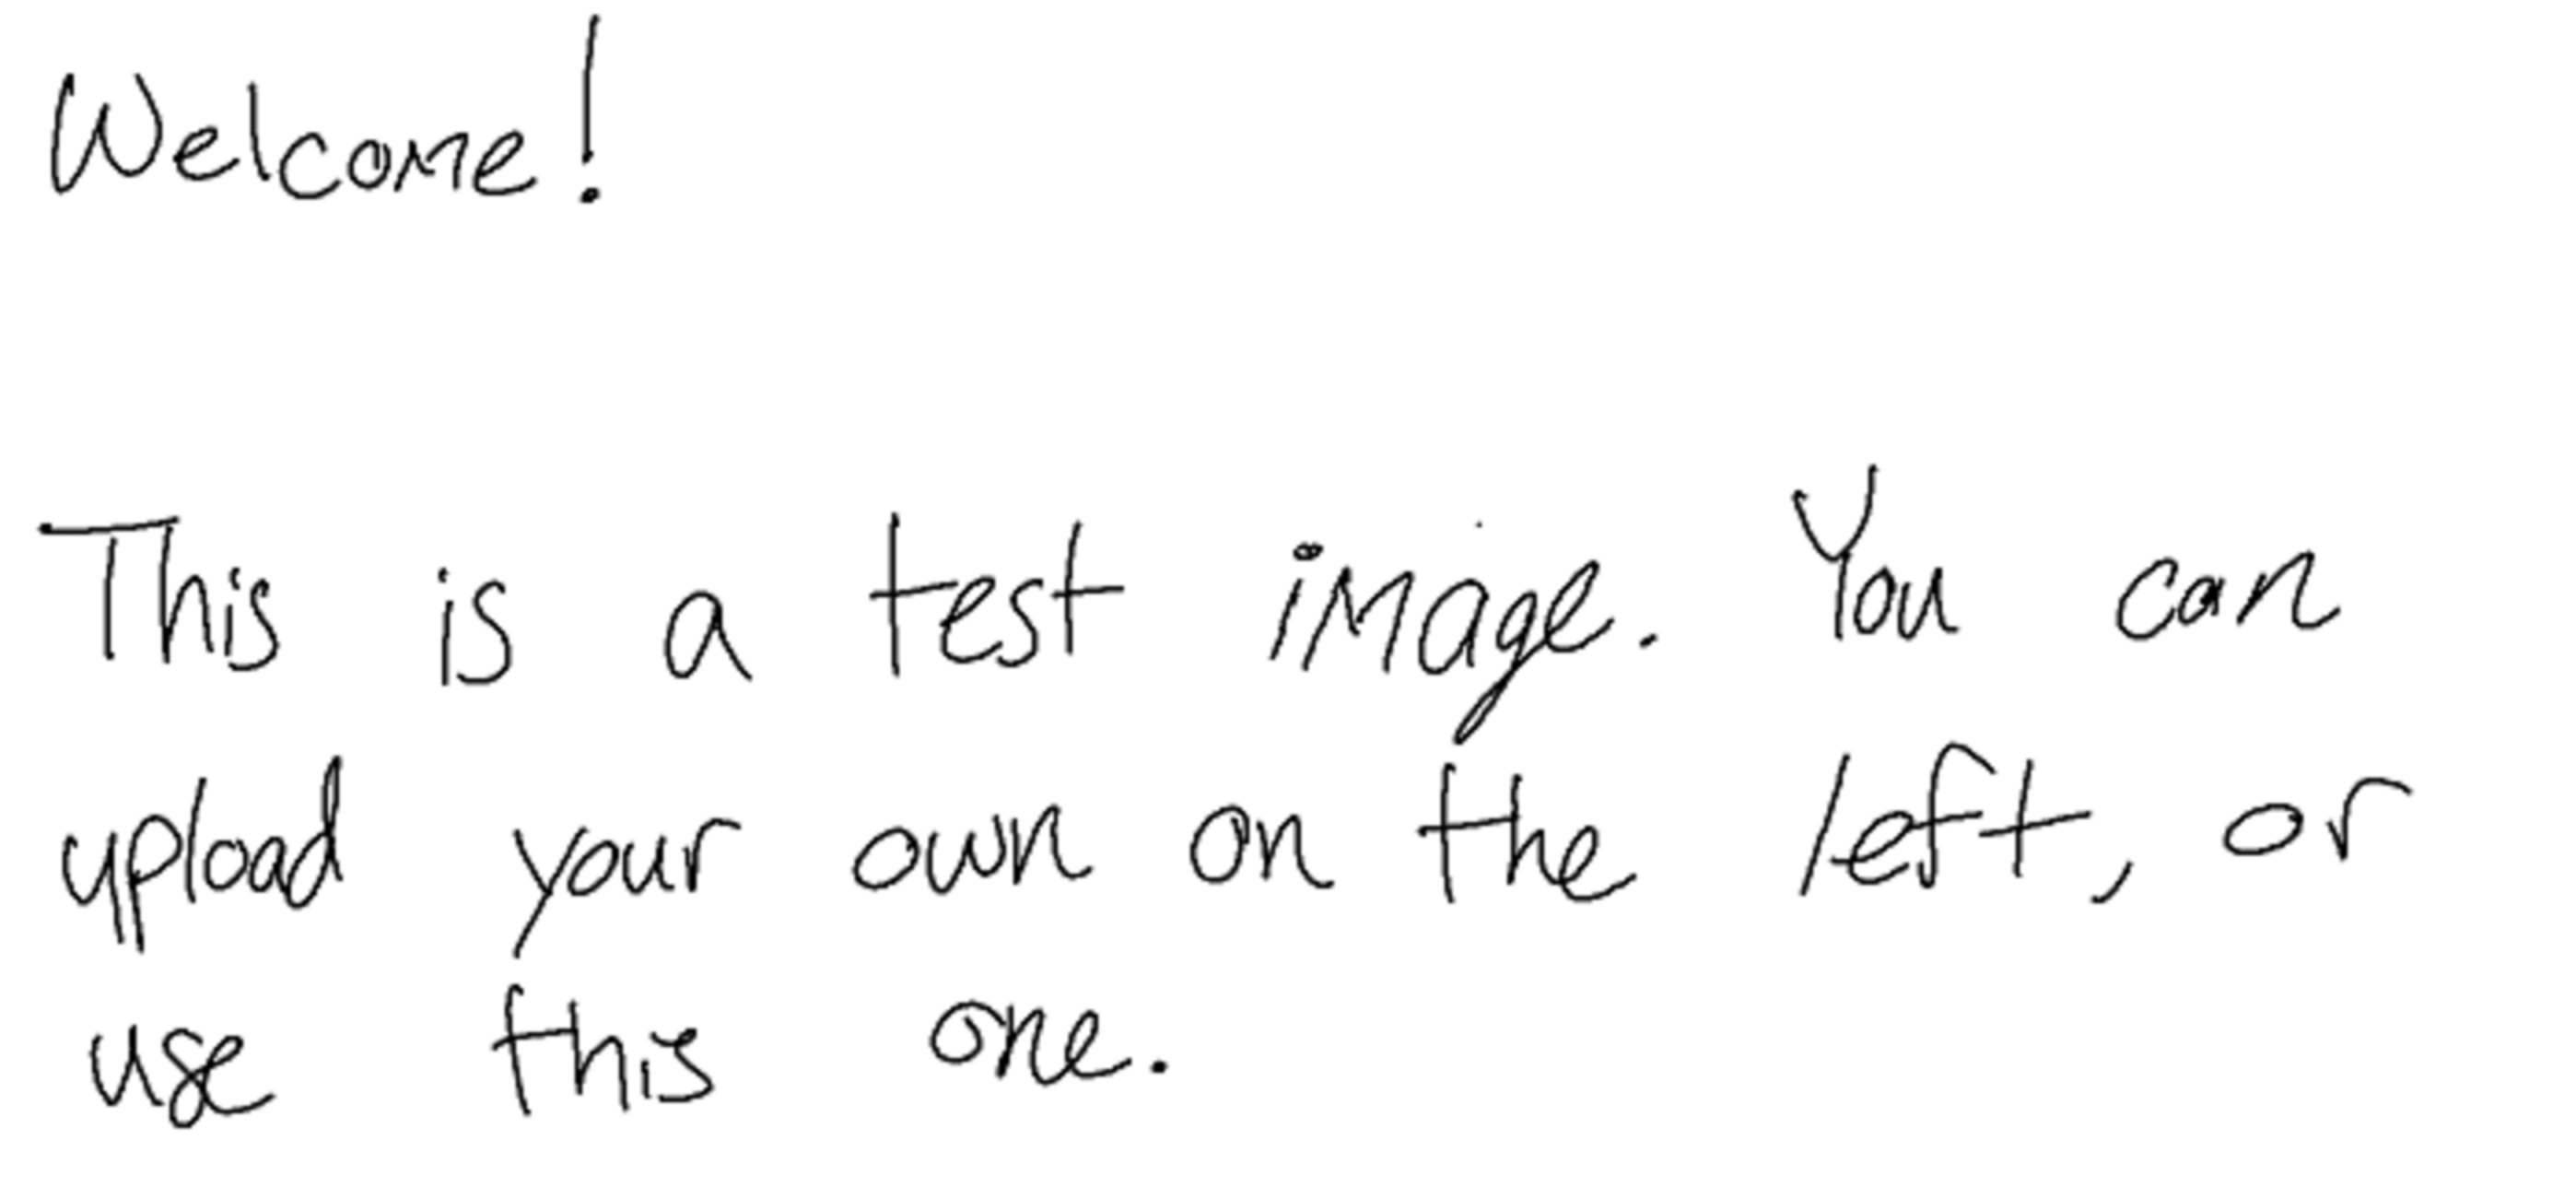 Welcome!
This is a test image. You can
upload your own on the left, or
use this one.